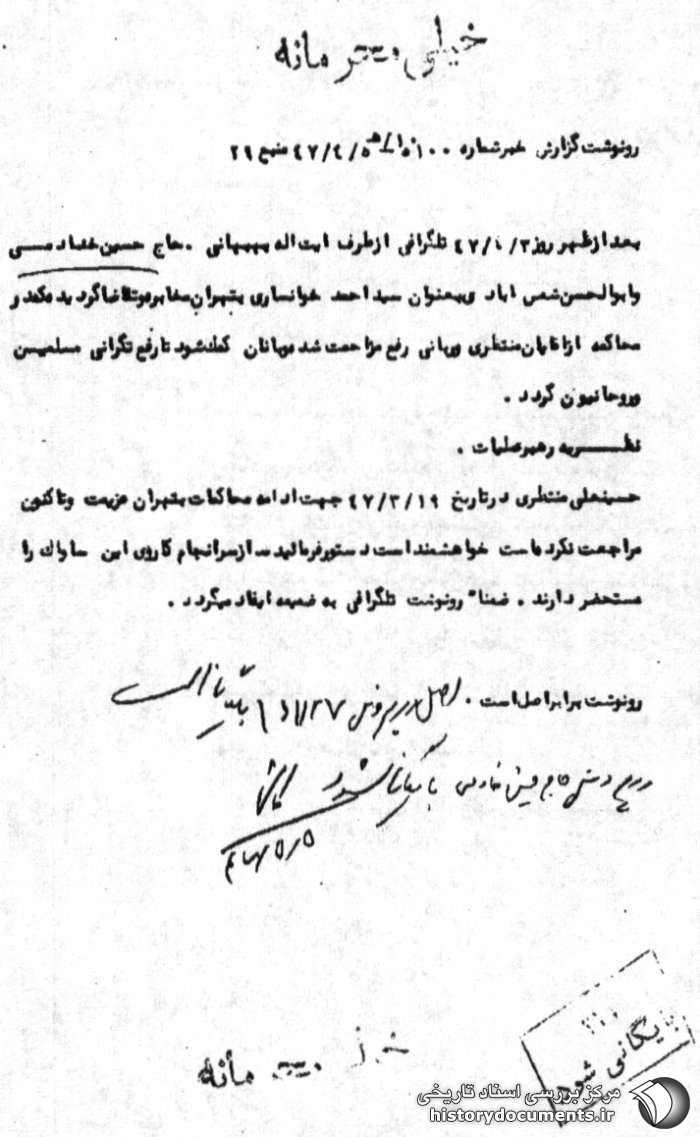 خیلی محرمانه
رونوشت گزارش خبر شماره ۱۰۰ ۴۷/۴/۵ منبع ۲۹
بعد از ظهر روز ۴۷/۴/۳ تلگرافی از طرف ایت اله بهبهانی . حاج حسین خدادمسی
وابوالحسن شمس ابادی بعنوان سید احمد خوانساری بتهران مخابره وتقاضا گردیده که در
محاکمه ازاقایان منتظری وربانی رفع مزاحمت شده وبانان کمک شود تا رفع نگرانی مسلمین
وروحانیون گردد .
نظــــریه رهبرعملیات .
حسینعلی منتظری در تاریخ ۴۷/۳/۱۹ جهت ادامه محاکمات بتهران عزیمت وتاکنون
مراجعت نکرده است خواهشمند است دستور فرمائید از سرانجام کار وی این ساواك را
مستحضر دارند . ضمنا" رونوشت تلگرافی به ضمیمه ایفاد میگردد .
رونوشت برابر اصل است . اصل در پرونده
در پرونده حاج حسین خادمی بایگانی شود
خیلی محرمانه
بایگانی شود
مرکز بررسی اسناد تاریخی
historydocuments.ir